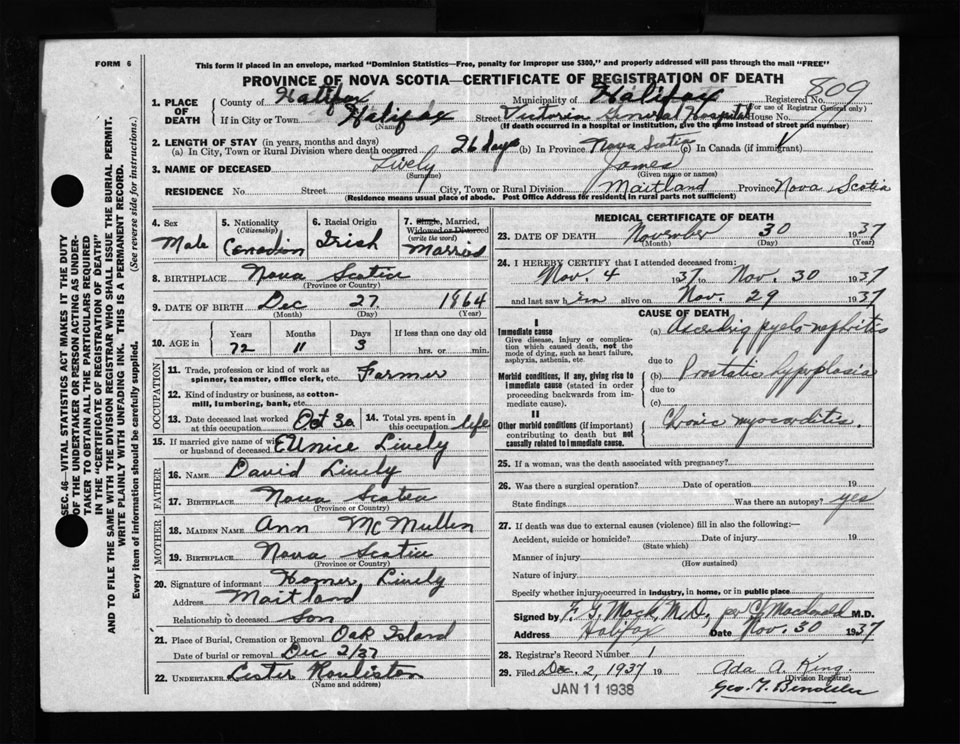 FORM 6
This form if placed in an envelope, marked "Dominion Statistics—Free, penalty for improper use $300," and properly addressed will pass through the mail "FREE"
PROVINCE OF NOVA SCOTIA—CERTIFICATE OF REGISTRATION OF DEATH
809
1. PLACE OF DEATH
County of Halifax Municipality of Halifax Registered No.
(For use of Registrar General only)
If in City or Town Halifax Street Victoria General Hospital House No.
(Name) (If death occurred in a hospital or institution, give the name instead of street and number)
2. LENGTH OF STAY (in years, months and days)
(a) In City, Town or Rural Division where death occurred 26 days (b) In Province Nova Scotia (c) In Canada (if immigrant)
3. NAME OF DECEASED Lively James
(Surname) (Given name or names)
RESIDENCE No. Street City, Town or Rural Division Maitland Province Nova Scotia
(Residence means usual place of abode. Post Office Address for residents in rural parts not sufficient)
4. Sex Male
5. Nationality (Citizenship) Canadian
6. Racial Origin Irish
7. Single, Married, Widowed or Divorced (write the word) Married
8. BIRTHPLACE Nova Scotia
(Province or Country)
9. DATE OF BIRTH Dec 27 1864
(Month) (Day) (Year)
10. AGE in Years Months Days If less than one day old
72 11 3 hrs. or min.
OCCUPATION
11. Trade, profession or kind of work as spinner, teamster, office clerk, etc. Farmer
12. Kind of industry or business, as cotton-mill, lumbering, bank, etc.
13. Date deceased last worked at this occupation Oct 30
14. Total yrs. spent in this occupation life
15. If married give name of wife or husband of deceased Eunice Lively
FATHER
16. NAME David Lively
17. BIRTHPLACE Nova Scotia
(Province or Country)
MOTHER
18. MAIDEN NAME Ann McMullen
19. BIRTHPLACE Nova Scotia
(Province or Country)
20. Signature of informant Homer Lively
Address Maitland
Relationship to deceased Son
21. Place of Burial, Cremation or Removal Oak Island
Date of burial or removal Dec 2/37
22. UNDERTAKER Lester Rouliston
(Name and address)
MEDICAL CERTIFICATE OF DEATH
23. DATE OF DEATH November 30 1937
(Month) (Day) (Year)
24. I HEREBY CERTIFY that I attended deceased from:
Nov. 4 1937 to Nov. 30 1937
and last saw him alive on Nov. 29 1937
CAUSE OF DEATH
I
Immediate cause (a) Ascending pyelo-nephritis
Give disease, injury or complication which caused death, not the mode of dying, such as heart failure, asphyxia, asthenia, etc.
due to
Morbid conditions, if any, giving rise to immediate cause (stated in order proceeding backwards from immediate cause).
(b) Prostatic hyperplasia
due to
(c)
II
Other morbid conditions (if important) contributing to death but not causally related to immediate cause.
Chronic myocarditis.
25. If a woman, was the death associated with pregnancy?
26. Was there a surgical operation? Date of operation 19
State findings Was there an autopsy? yes
27. If death was due to external causes (violence) fill in also the following:—
Accident, suicide or homicide? Date of injury 19
(State which)
Manner of injury
(How sustained)
Nature of injury
Specify whether injury occurred in industry, in home, or in public place
Signed by F. G. Mack, M.D. per C. Macdonald M.D.
Address Halifax Date Nov. 30 1937
28. Registrar's Record Number 1
29. Filed Dec. 2, 1937 19 Ada A. King.
(Division Registrar)
JAN 11 1938
SEC. 46—VITAL STATISTICS ACT MAKES IT THE DUTY
OF THE UNDERTAKER OR PERSON ACTING AS UNDER-
TAKER TO OBTAIN ALL THE PARTICULARS REQUIRED
IN THE "CERTIFICATE OF REGISTRATION OF DEATH"
AND TO FILE THE SAME WITH THE DIVISION REGISTRAR WHO SHALL ISSUE THE BURIAL PERMIT.
WRITE PLAINLY WITH UNFADING INK. THIS IS A PERMANENT RECORD.
Every item of information should be carefully supplied. (See reverse side for instructions.)